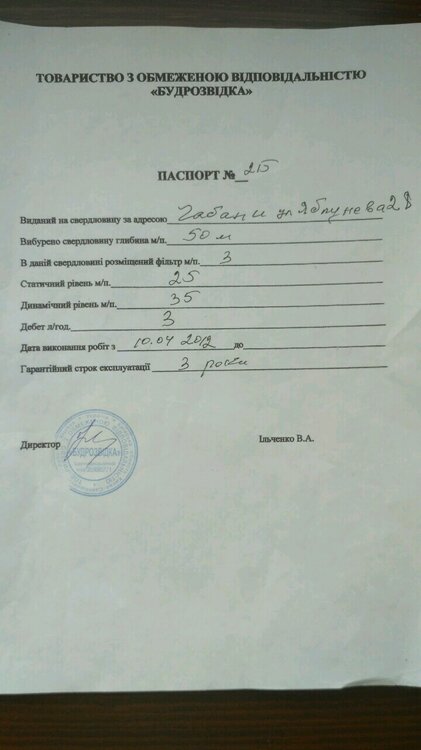 ТОВАРИСТВО З ОБМЕЖЕНОЮ ВІДПОВІДАЛЬНІСТЮ
«БУДРОЗВІДКА»
ПАСПОРТ №
Виданий на свердловину за адресою Чабани ул Яблунева 28
Вибурено свердловину глибина м/п. 50 м
В даній свердловині розміщений фільтр м/п. 3
Статичний рівень м/п. 25
Динамічний рівень м/п. 35
Дебет л/год. 3
Дата виконання робіт з 10.04 2012 до
Гарантійний строк експлуатації 3 роки
Директор Ільченко В.А.
«БУДРОЗВІДКА»